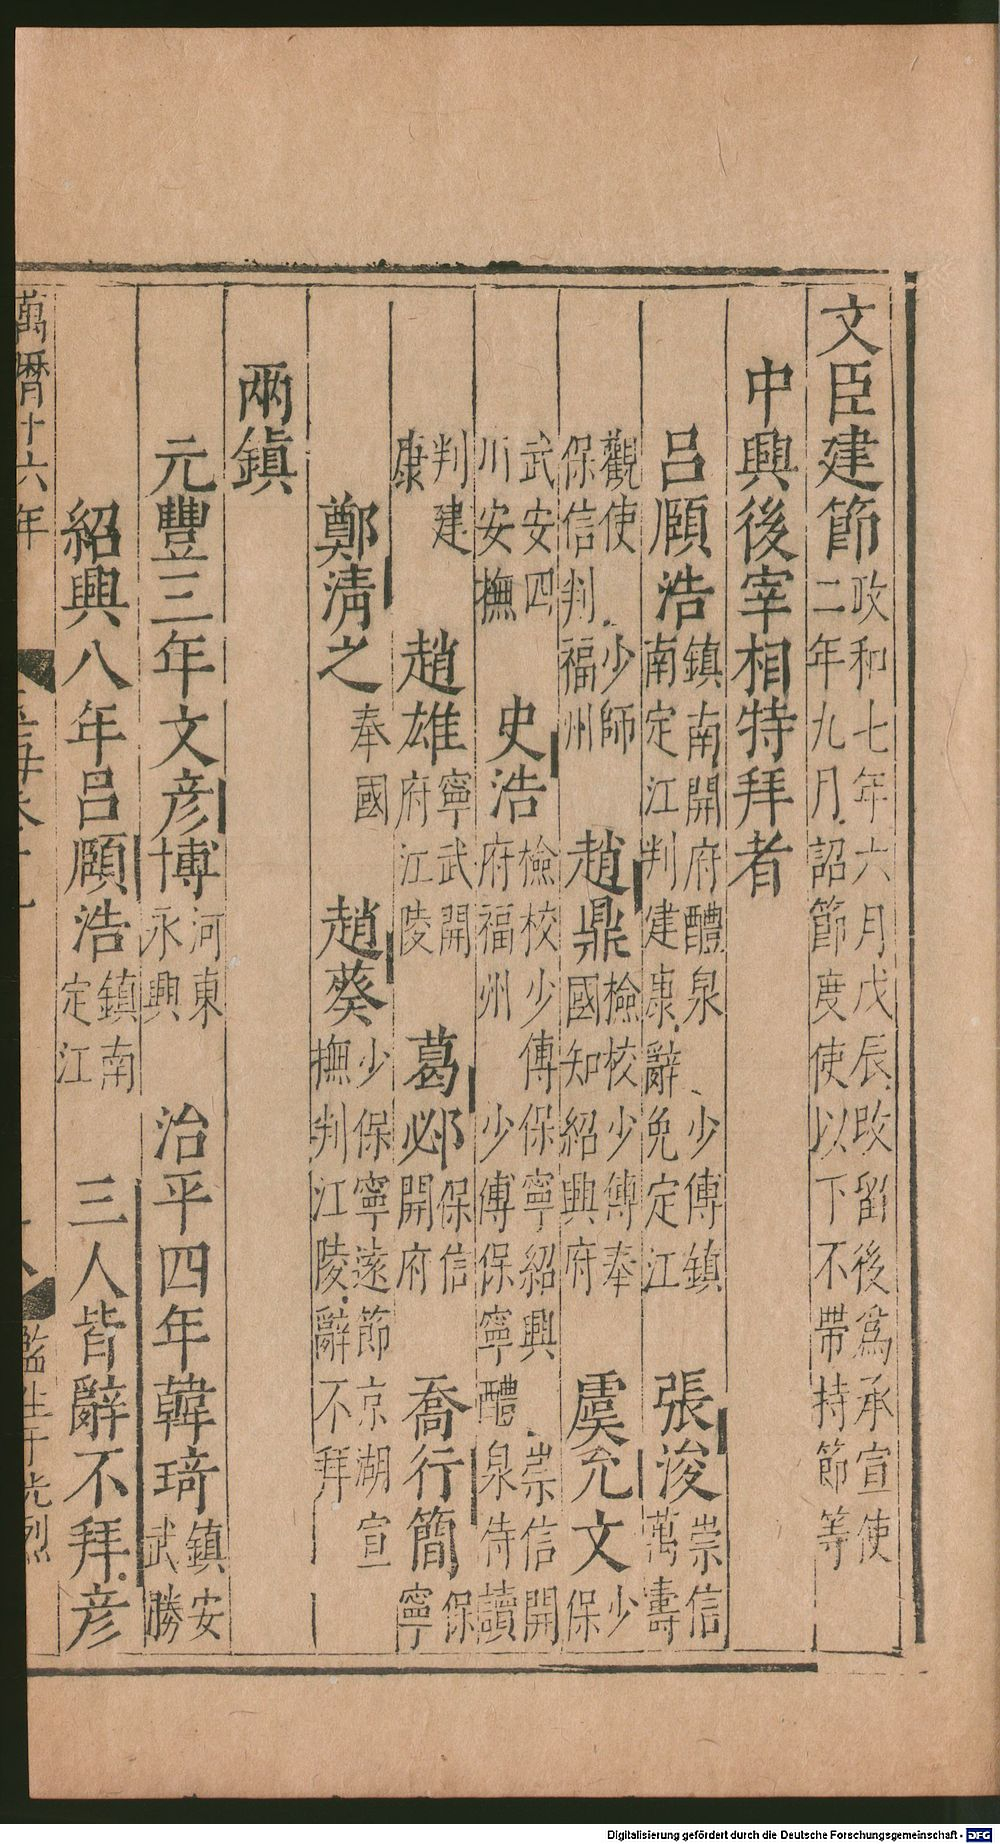 文臣建節政和七年六月戊辰改留後爲承宣使二年九月詔節度使以下不帶持節等
中興後宰相特拜者
呂頤浩鎮南開府醴泉少傅鎮南定江判建康辭免定江張浚崇信萬壽
觀使少師保信判福州趙鼎檢校少傅奉國知紹興府虞允文少保
武安四川安撫史浩檢校少傅保寧紹興府福州少傅保寧醴泉侍讀崇信開
判建康趙雄寧武開府江陵葛邲保信開府喬行簡保寧
鄭清之奉國趙葵少保寧遠節京湖宣撫判江陵辭不拜
兩鎮
元豐三年文彦博河東永興治平四年韓琦鎮安武勝
紹興八年呂頤浩鎮南定江三人皆辭不拜彦
萬曆十六年
監生于光烈
Digitalisierung gefördert durch die Deutsche Forschungsgemeinschaft - DFG